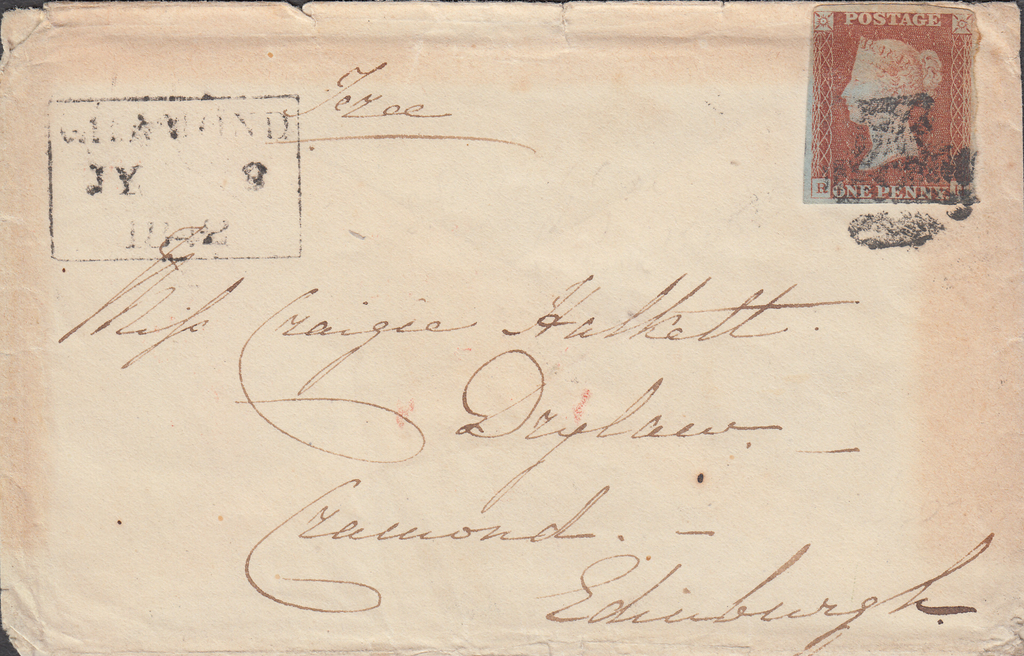 POSTAGE
Free
CRAMOND
JY 9
1842
ONE PENNY
Miss Craigie Halkett.
Drylaw. —
Cramond. —
Edinburgh.